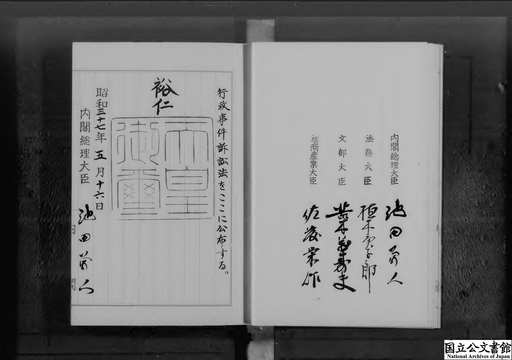 内閣総理大臣 池田勇人
法務大臣 植木庚子郎
文部大臣 荒木萬壽夫
通商産業大臣 佐藤榮作
行政事件訴訟法をここに公布する。
裕仁
天皇
御璽
昭和三十七年五月十六日
内閣総理大臣 池田勇人
国立公文書館
National Archives of Japan